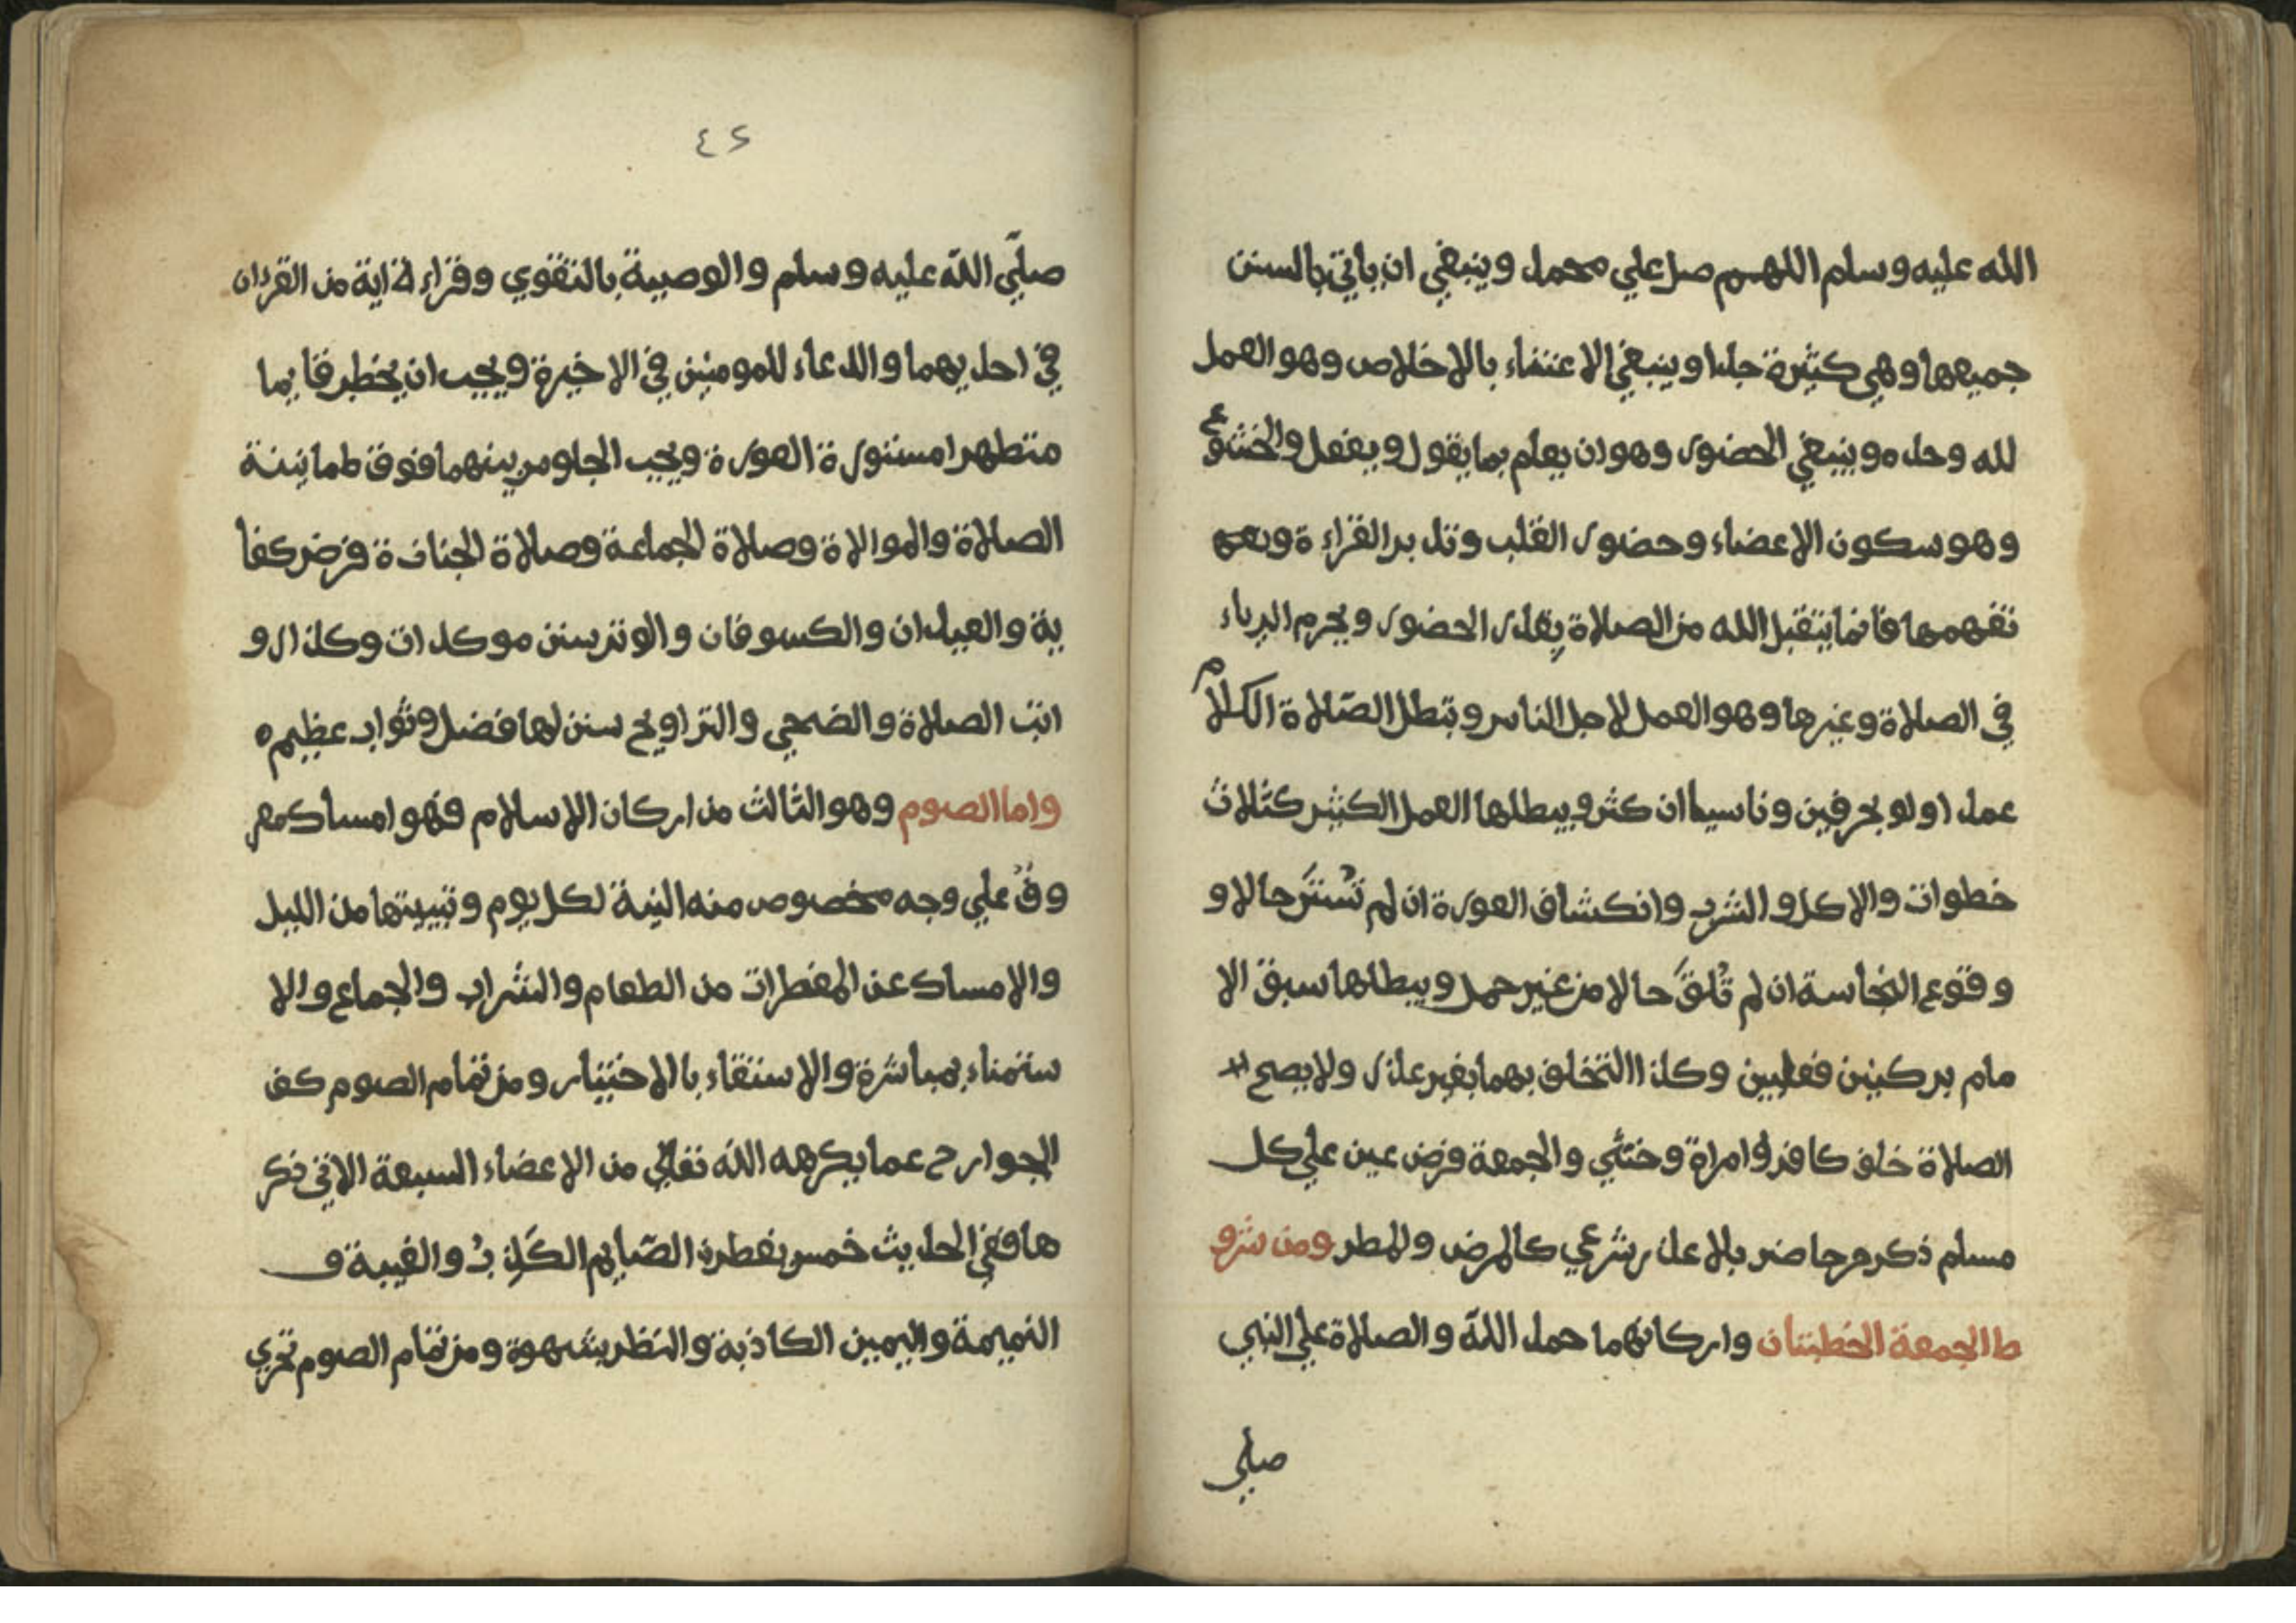 الله عليه وسلم اللهم صل علي محمد وينبغي ان ياتي بالسنن
جميعها وهي كثيرة جدا وينبغي الاعتناء بالاخلاص وهو العمل
لله وحده وينبغي الحضور وهو ان يعلم بما يقول ويفعل والخشوع
وهو سكون الاعضاء وحضور القلب وتدبر القراءة وتعهد
تفهمها فانما يتقبل الله من الصلاة بقدر الحضور ويحرم الرياء
في الصلاة وغيرها وهو العمل لاجل الناس وتبطل الصّلاة الكلام
عمدا ولو بحرفين وناسيا ان كثر ويبطلها العمل الكثير كثلاث
خطوات والاكل والشرب وانكشاف العورة ان لم تُستَر حالا و
وقوع النجاسة ان لم تُلقَ حالا من غير حمل ويبطلها سبق الا
مام بركنين فعليين وكذا التخلف بهما بغير عذر ولا يصح
الصلاة خلف كافر وامراة وخنثي والجمعة فرض عين علي كل
مسلم ذكر حاضر بلا عذر شرعي كالمرض والمطر ومن شرو
ط الجمعة الخطبتان واركانهما حمد اللّه والصلاة علي النبي
صلي
٤٢
صلّي اللّه عليه وسلم والوصية بالتقوي وقراءة اية من القران
في احديهما والدعاء للمومنين في الاخيرة ويجب ان يخطب قايما
متطهرا مستور العورة ويجب الجلوس بينهما فوق طمانينة
الصلاة والموالاة وصلاة الجماعة وصلاة الجنازة فرض كفا
ية والعيدان والكسوفان والوتر سنن موكدات وكذا رو
اتب الصلاة والضحي والتراويح سنن لها فضل وثواب عظيم ه
واما الصوم وهو الثالث من اركان الاسلام فهو امساك معر
وفٌ علي وجه مخصوص منه النية لكل يوم وتبييتها من الليل
والامساك عن المفطرات من الطعام والشراب والجماع والا
ستمناء بمباشرة والاستقاء بالاختيار ومن تمام الصوم كف
الجوارح عما يكرهه اللّه تعالي من الاعضاء السبعة الاتي ذكر
ها ففي الحديث خمس يفطرن الصّايم الكَذِبُ والغيبة و
النميمة واليمين الكاذبة والنظر بشهوة ومن تمام الصوم تحري